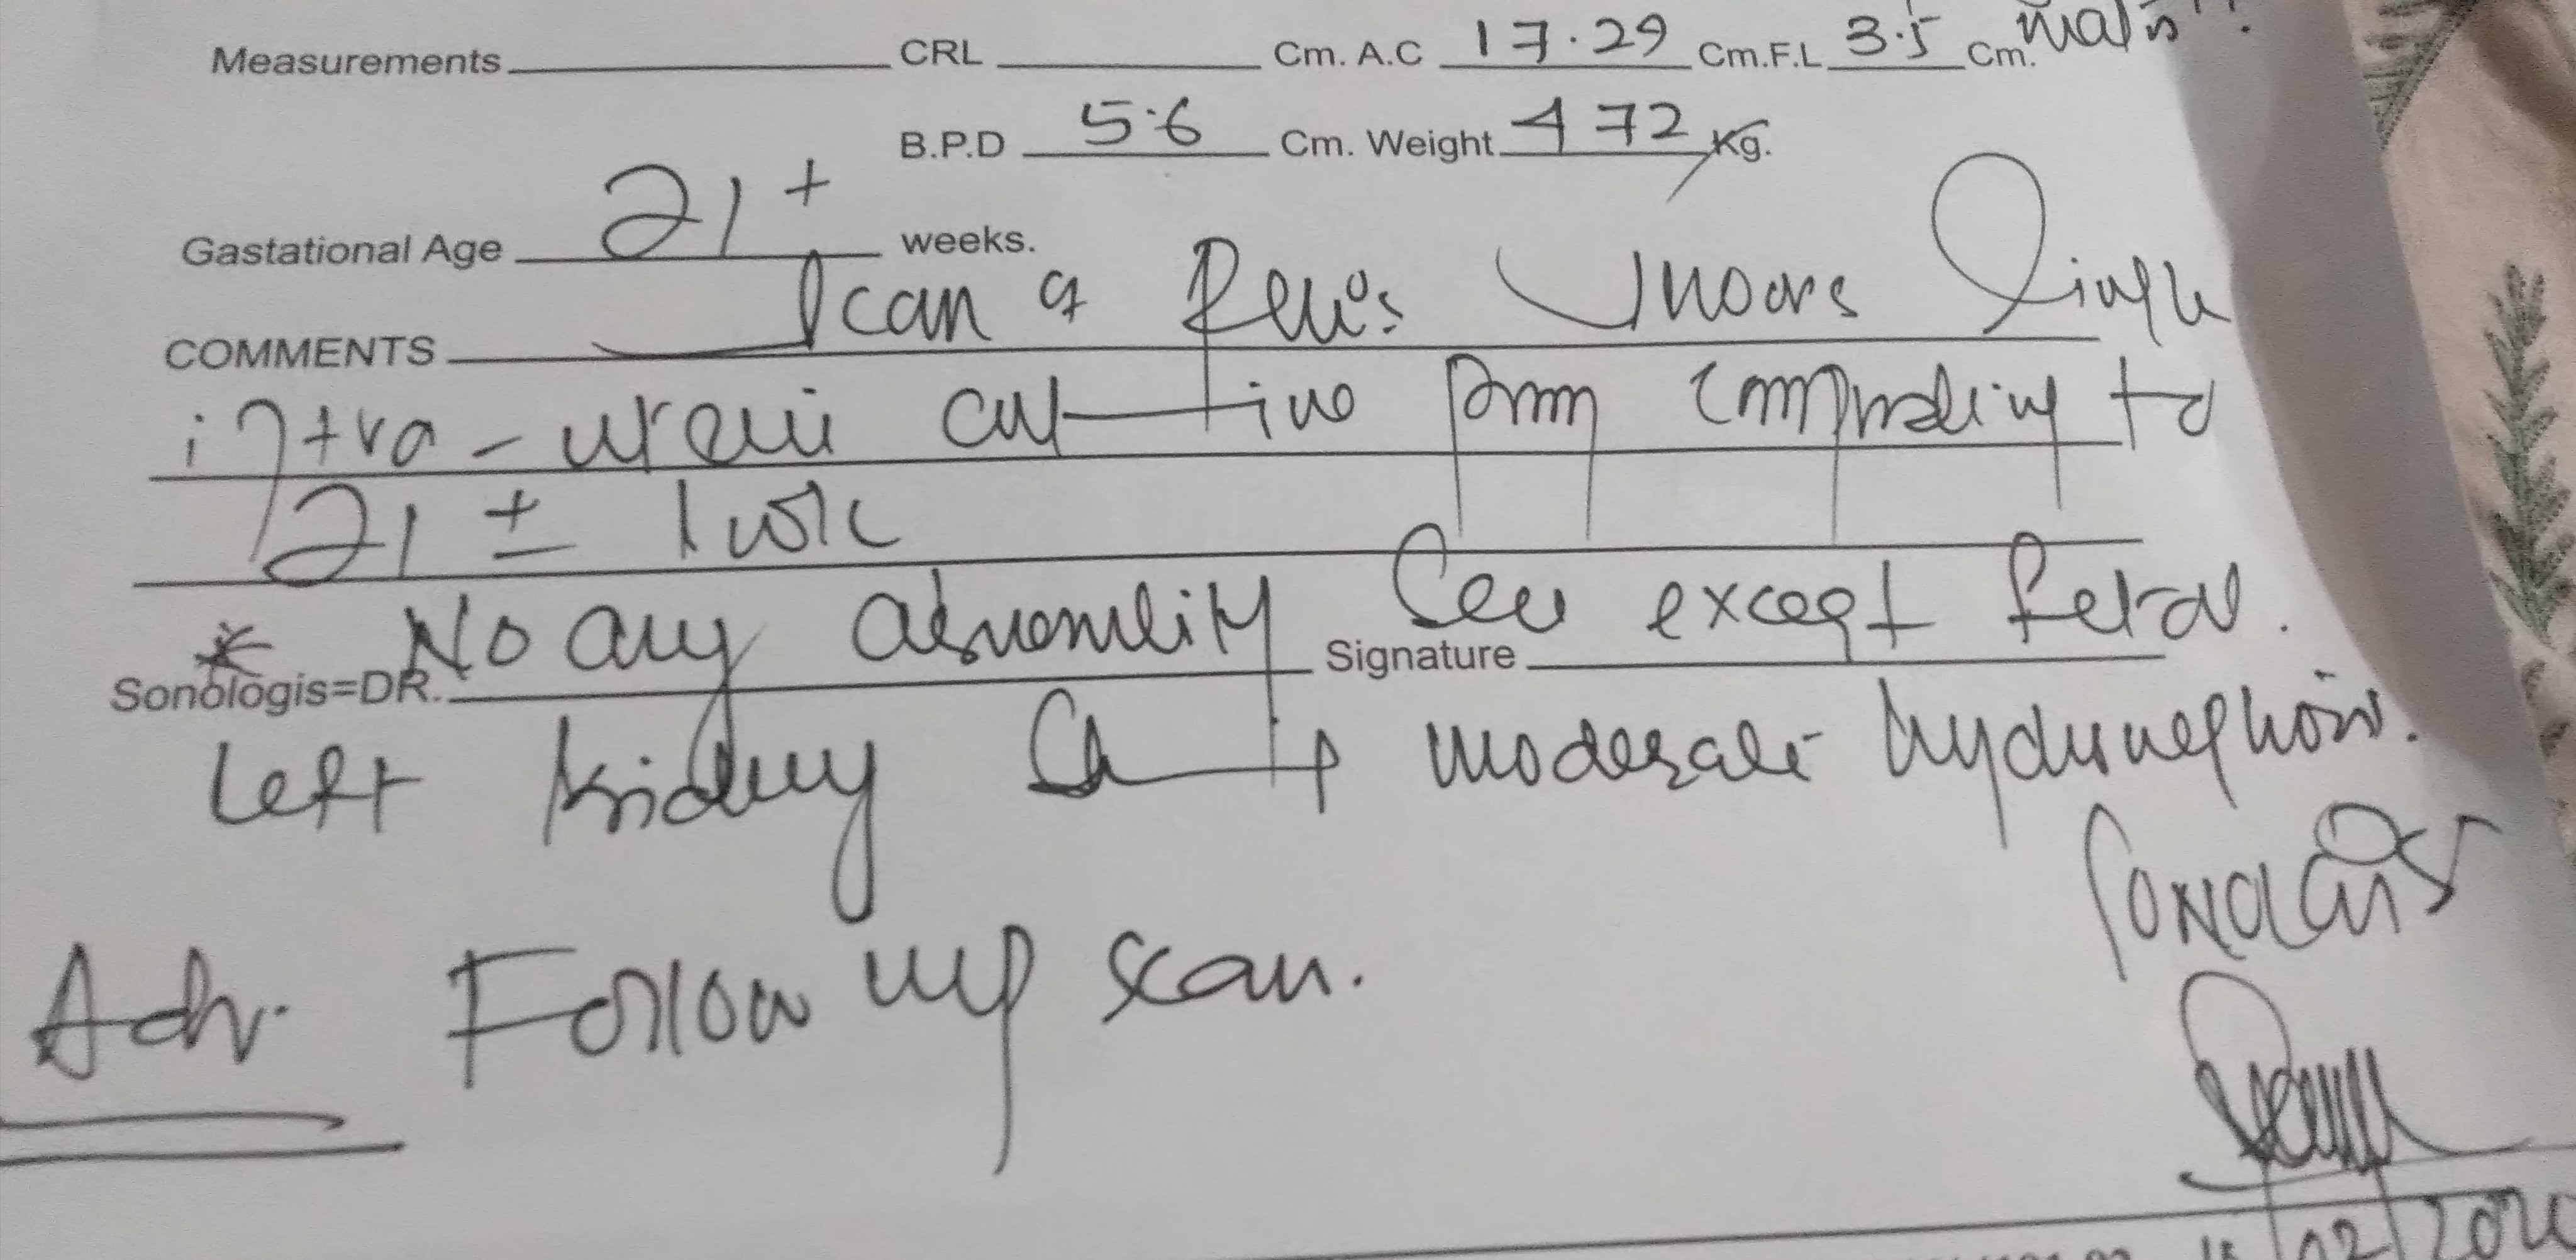 Measurements CRL Cm. A.C 17.29 Cm.F.L 3.5 Cm.
B.P.D 5.6 Cm. Weight 472 Kg.
Gastational Age 21+ weeks.
COMMENTS Scan of Pelvis shows Single
intra-uterine active corresponding to
21 ± 1 wk
* No any abnormality See except fetal.
Sonologis=DR. Signature
Left kidney moderate hydronephrosis.
Sonologist
Adv. Follow up scan.